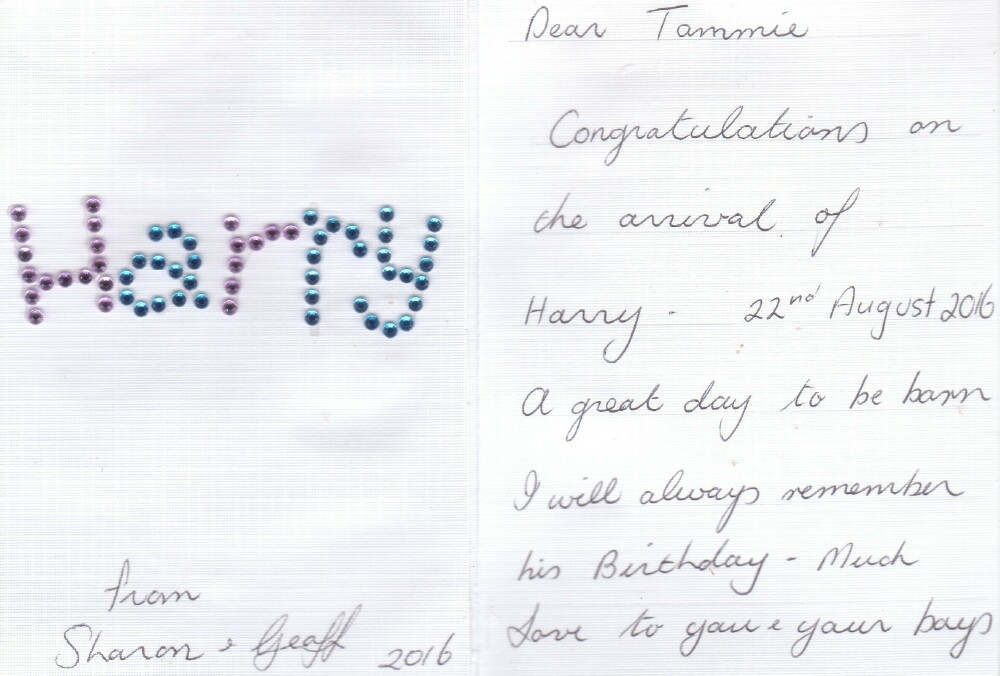 Harry
from
Sharon & Geoff 2016
Dear Tammie
Congratulations on
the arrival of
Harry - 22nd August 2016
A great day to be born
I will always remember
his Birthday - Much
Love to you & your boys